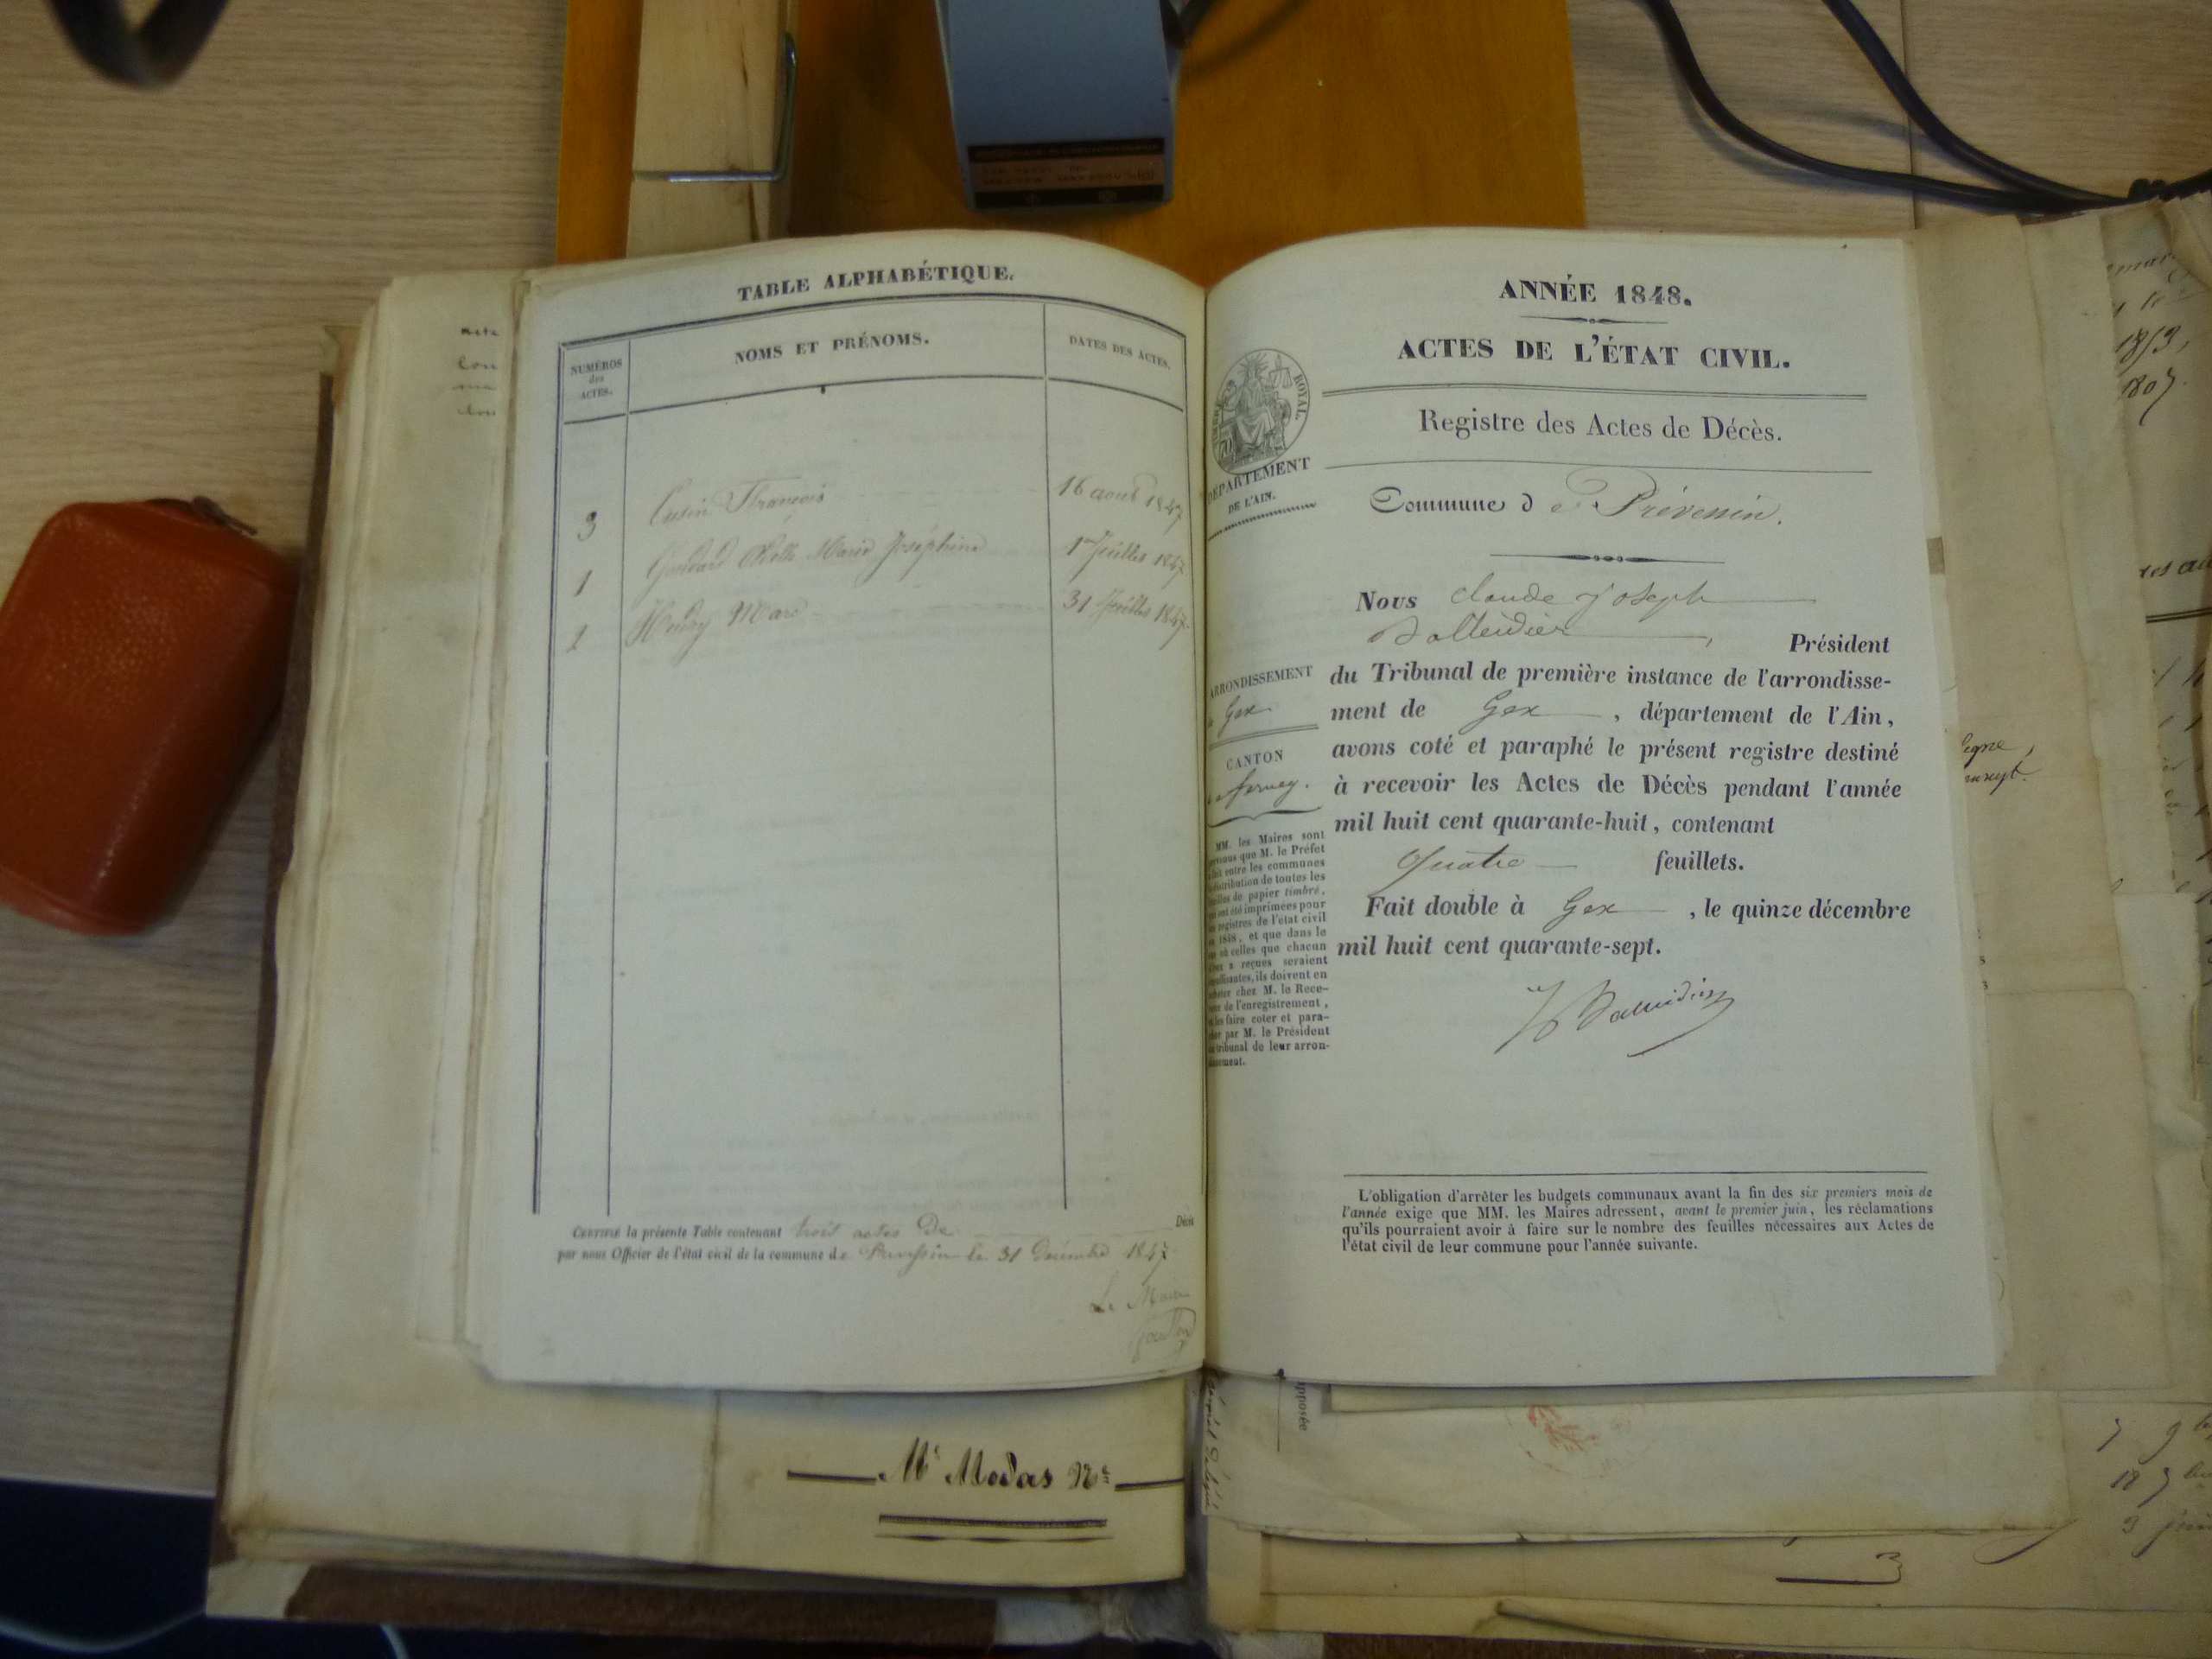 TABLE ALPHABÉTIQUE.
NUMÉROS
des
ACTES.
NOMS ET PRÉNOMS.
DATES DES ACTES.
3 François 16 aout 1847
1 Marie Joséphine 1er Juillet 1847
2 Marc 31 Juillet 1847.
CERTIFIÉ la présente Table contenant trois actes de Décès
par nous Officier de l'état civil de la commune de le 31 Décembre 1847
Le Maire
Mr Modas Nre
ANNÉE 1848.
ACTES DE L'ÉTAT CIVIL.
Registre des Actes de Décès.
TIMBRE ROYAL
DÉPARTEMENT
DE L'AIN.
Commune de Prévessin.
Nous Claude Joseph
Président
du Tribunal de première instance de l'arrondisse-
ment de Gex, département de l'Ain,
avons coté et paraphé le présent registre destiné
à recevoir les Actes de Décès pendant l'année
mil huit cent quarante-huit, contenant
Quatre feuillets.
Fait double à Gex, le quinze décembre
mil huit cent quarante-sept.
ARRONDISSEMENT
de Gex
CANTON
de ferney.
MM. les Maires sont
prévenus que M. le Préfet
a fait entre les communes
distribution de toutes les
feuilles de papier timbré,
qui ont été imprimées pour
registres de l'état civil
1848, et que dans le
cas où celles que chacun
d'eux a reçues seraient
insuffisantes, ils doivent en
acheter chez M. le Rece-
veur de l'enregistrement,
et les faire coter et para-
pher par M. le Président
du tribunal de leur arron-
dissement.
L'obligation d'arrêter les budgets communaux avant la fin des six premiers mois de
l'année exige que MM. les Maires adressent, avant le premier juin, les réclamations
qu'ils pourraient avoir à faire sur le nombre des feuilles nécessaires aux Actes de
l'état civil de leur commune pour l'année suivante.